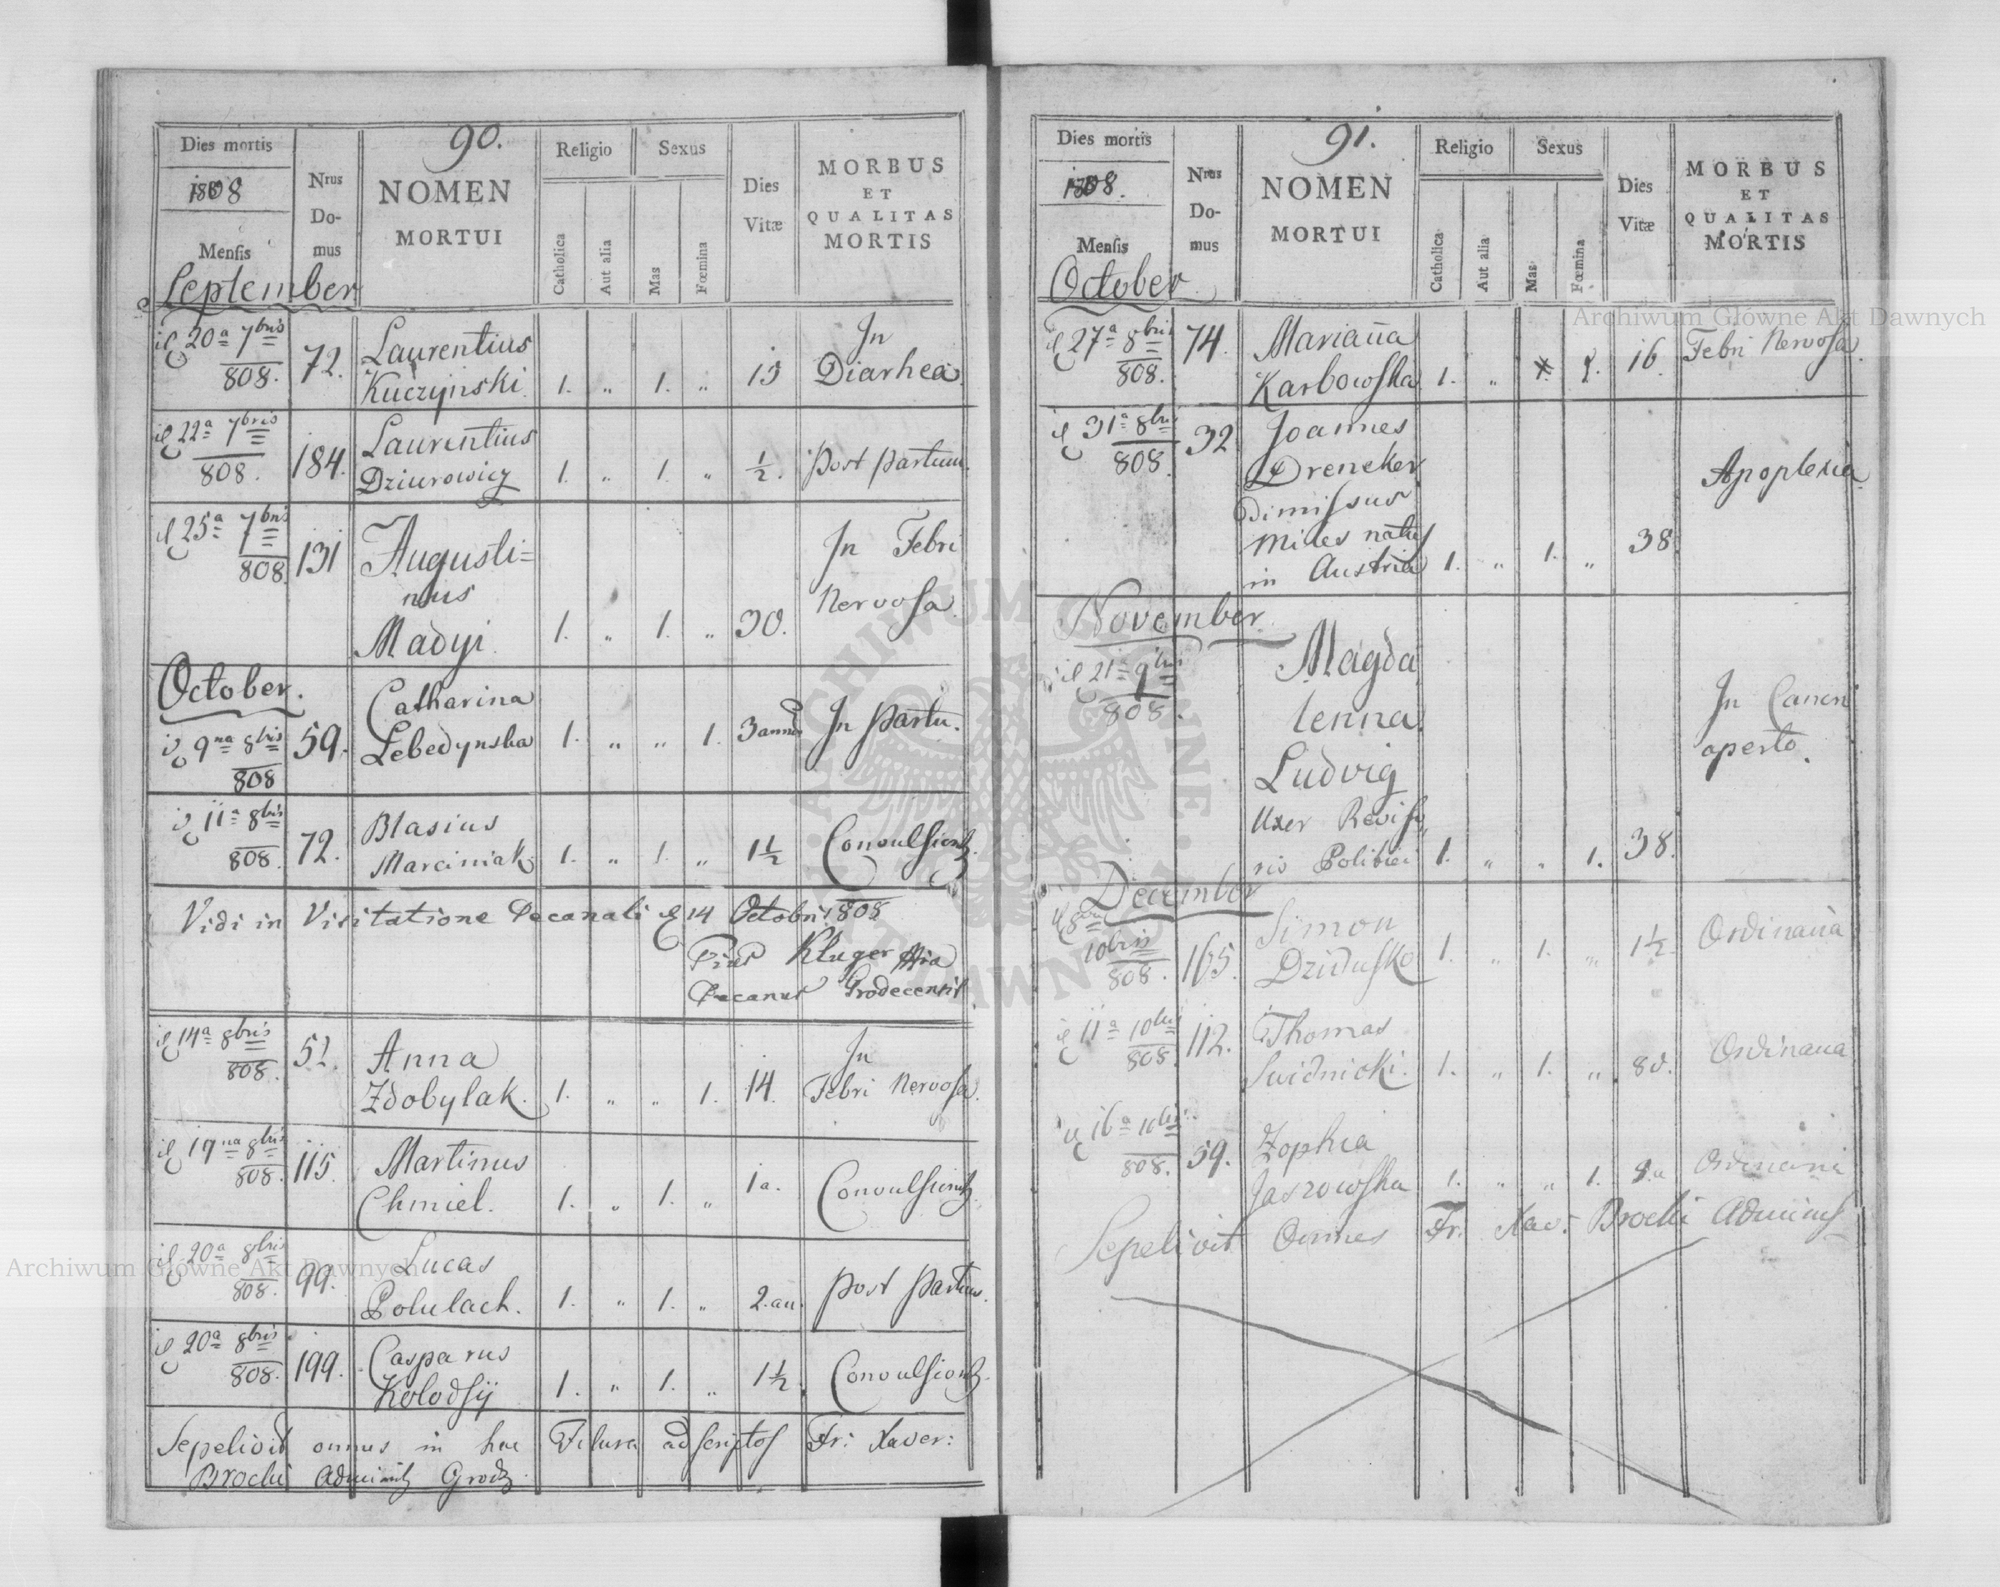 90.
Dies mortis
1808
Mensis
Nrus
Do-
mus
NOMEN
MORTUI
Religio
Catholica
Aut alia
Sexus
Mas
Fœmina
Dies
Vitæ
MORBUS
ET
QUALITAS
MORTIS
September
20a 7bris 808. 72. Laurentius
Kuczynski. 1. „ 1. „ 13 In Diarhea.
22a 7bris 808. 184. Laurentius
Dziurowicz 1. „ 1. „ 1/2. post partum.
25a 7bris 808. 131 Augusti=
nus
Madyi. 1. „ 1. „ 30. In Febri Nervosa.
October.
9na 8bris 808 59. Catharina
Lebedynska 1. „ „ 1. 3 In partu.
11a 8bris 808. 72. Blasius
Marciniak 1. „ 1. „ 1 1/2
Vidi in Visitatione Decanali 14 Octobri 1808
Kluger
Decanus Grodecensis.
14a 8bris 808. 51. Anna
Zdobylak. 1. „ „ 1. 14. In Febri Nervosa.
19na 8bris 808. 115. Martinus
Chmiel. 1. „ 1. „ 1a.
20a 8bris 808. 99. Lucas
Polulach. 1. „ 1. „ 2. an. post partum.
20a 8bris 808. 199. Casparus
Kolodsij 1. „ 1. „ 1 1/2.
Sepelivit omnes in hac adscriptos Fr: Xaver:
Brocki
91.
Dies mortis
1808.
Mensis
Nrus
Do-
mus
NOMEN
MORTUI
Religio
Catholica
Aut alia
Sexus
Mas
Fœmina
Dies
Vitæ
MORBUS
ET
QUALITAS
MORTIS
October
27a 8bris 808. 74. Marianna
Karbowska 1. „ 1. 16. Febri Nervosa.
31a 8bris 808. 32 Joannes
Dreneker
dimissus
Miles natus
in Austria 1. „ 1. „ 38. Apoplexia.
November
21a 9bris 808. Magda
lenna
Ludvig
Uxer Reviso
ris Politici 1. „ „ 1. 38. In Cancri
aperto.
December
8bris 10bris 808. 165. Simon
Dzidusko 1. „ 1. „ 1 1/2. Ordinaria
11a 10bris 808. 112. Thomas
Swidnicki. 1. „ 1. „ 80. Ordinaria
16a 10bris 808. 59. Zophia
Jaszowska 1. „ „ 1. 8a
Sepelivit Omnes Fr. Xav: Brocki
Archiwum Główne Akt Dawnych
Archiwum Główne Akt Dawnych
ARCHIWUM GŁÓWNE AKT DAWNYCH